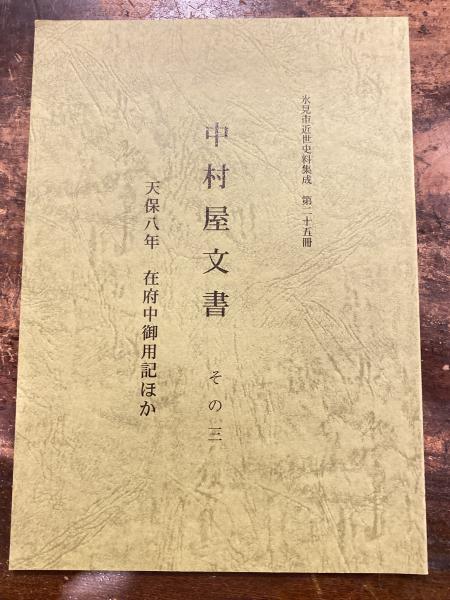 氷見市近世史料集成　第二十五冊
中村屋文書　その三
天保八年　在府中御用記ほか